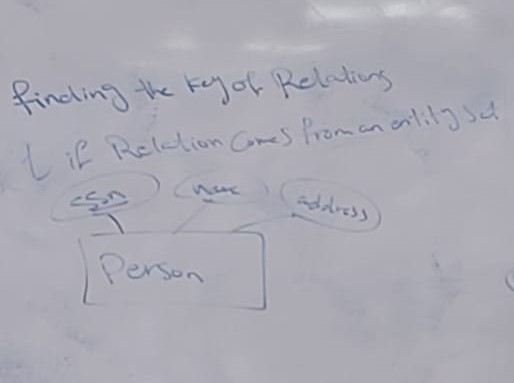 finding the key of Relations
if Relation Comes from an entity set
ssn name address
Person